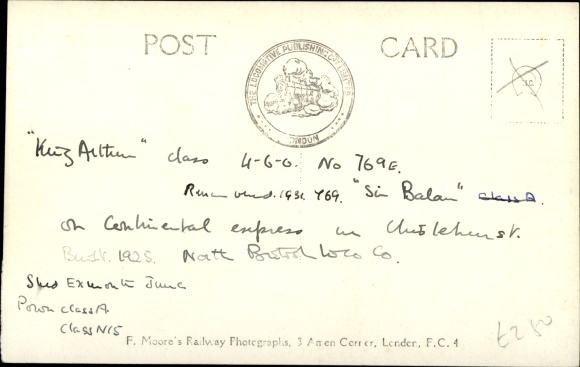 POST CARD
THE LOCOMOTIVE PUBLISHING COY LIMITED
LONDON
"King Arthur" class 4-6-0. No 769E.
Renumbered. 1931 769. "Sir Balan" class A.
on Continental express in Chislehurst.
Built. 1925. North British Loco Co.
Shed Exmouth Junc
Power class A
Class N15
F. Moore's Railway Photographs, 3 Amen Corner, London, E.C. 4
£2.50